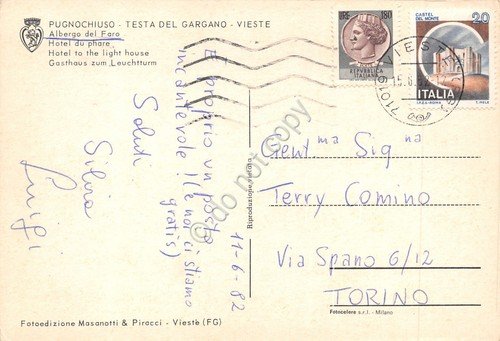 PUGNOCHIUSO - TESTA DEL GARGANO - VIESTE
Albergo del Faro
Hotel du phare
Hotel to the light house
Gasthaus zum Leuchtturm
11-6-82
È proprio un posto
incantevole! (e noi ci stiamo
gratis)
Saluti
Silvia
Luigi
Riproduzione vietata
LIRE 180
REPUBBLICA
ITALIANA
CASTEL
DEL MONTE
20
ITALIA
I.P.Z.S.-ROMA
VIESTE
71019
Gent.ma Sig.na
Terry Comino
Via Spano 6/12
TORINO
Fotocelere s.r.l. - Milano
Fotoedizione Masanotti & Piracci - Vieste (FG)
©do not copy